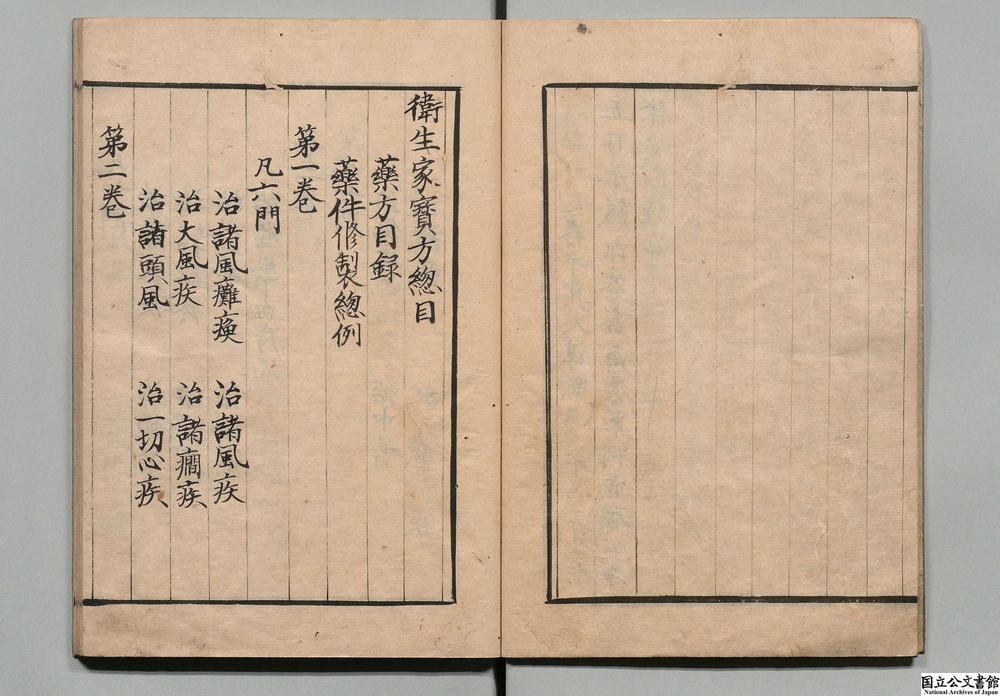 衛生家寶方總目
藥方目録
藥件修製總例
第一巻
凡六門
治諸風癱瘓　治諸風疾
治大風疾　治諸癇疾
治諸頭風　治一切心疾
第二巻
国立公文書館
National Archives of Japan